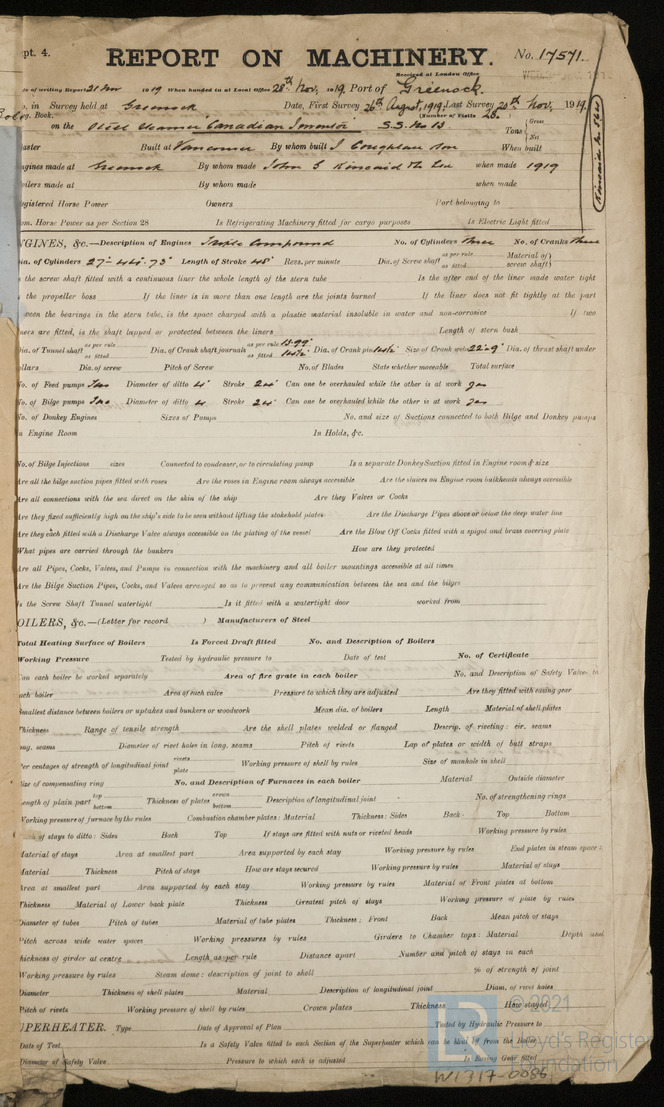 pt. 4.
REPORT ON MACHINERY.
No. 17571.
Received at London Office
of writing Report 21 Nov 1919 When handed in at Local Office 28th Nov, 1919 Port of Greenock.
in Survey held at Greenock Date, First Survey 26th August, 1919 Last Survey 20th Nov, 1919
Book. (Number of Visits 26.)
on the Steel Steamer "Canadian Inventor" S.S. No 13 Tons { Gross Net
aster Built at Vancouver By whom built J Coughlan Son When built
ngines made at Greenock By whom made John G Kincaid & Co Ltd when made 1919
oilers made at By whom made when made
egistered Horse Power Owners Port belonging to
om. Horse Power as per Section 28 Is Refrigerating Machinery fitted for cargo purposes Is Electric Light fitted
Kincaid No
NGINES, &c.—Description of Engines Triple Compound No. of Cylinders three No. of Cranks three
Dia. of Cylinders 27"-44½-73" Length of Stroke 48" Revs. per minute Dia. of Screw shaft as per rule as fitted Material of screw shaft
s the screw shaft fitted with a continuous liner the whole length of the stern tube Is the after end of the liner made water tight
the propeller boss If the liner is in more than one length are the joints burned If the liner does not fit tightly at the part
ween the bearings in the stern tube, is the space charged with a plastic material insoluble in water and non-corrosive If two
ners are fitted, is the shaft lapped or protected between the liners Length of stern bush
Dia. of Tunnel shaft as per rule as fitted Dia. of Crank shaft journals as per rule 13.99" as fitted 14½" Dia. of Crank pin 14½" Size of Crank webs 22×9" Dia. of thrust shaft under
ollars Dia. of screw Pitch of Screw No. of Blades State whether moveable Total surface
No. of Feed pumps Two Diameter of ditto 4" Stroke 24" Can one be overhauled while the other is at work yes
No. of Bilge pumps Two Diameter of ditto 4 Stroke 24" Can one be overhauled while the other is at work yes
No. of Donkey Engines Sizes of Pumps No. and size of Suctions connected to both Bilge and Donkey pumps
n Engine Room In Holds, &c.
No. of Bilge Injections sizes Connected to condenser, or to circulating pump Is a separate Donkey Suction fitted in Engine room & size
Are all the bilge suction pipes fitted with roses Are the roses in Engine room always accessible Are the sluices on Engine room bulkheads always accessible
Are all connections with the sea direct on the skin of the ship Are they Valves or Cocks
Are they fixed sufficiently high on the ship's side to be seen without lifting the stokehold plates Are the Discharge Pipes above or below the deep water line
Are they each fitted with a Discharge Valve always accessible on the plating of the vessel Are the Blow Off Cocks fitted with a spigot and brass covering plate
What pipes are carried through the bunkers How are they protected
Are all Pipes, Cocks, Valves, and Pumps in connection with the machinery and all boiler mountings accessible at all times
Are the Bilge Suction Pipes, Cocks, and Valves arranged so as to prevent any communication between the sea and the bilges
Is the Screw Shaft Tunnel watertight Is it fitted with a watertight door worked from
OILERS, &c.—(Letter for record ) Manufacturers of Steel
Total Heating Surface of Boilers Is Forced Draft fitted No. and Description of Boilers
Working Pressure Tested by hydraulic pressure to Date of test No. of Certificate
Can each boiler be worked separately Area of fire grate in each boiler No. and Description of Safety Valves to
each boiler Area of each valve Pressure to which they are adjusted Are they fitted with easing gear
Smallest distance between boilers or uptakes and bunkers or woodwork Mean dia. of boilers Length Material of shell plates
Thickness Range of tensile strength Are the shell plates welded or flanged Descrip. of riveting: cir. seams
ong. seams Diameter of rivet holes in long. seams Pitch of rivets Lap of plates or width of butt straps
Per centages of strength of longitudinal joint rivets plate Working pressure of shell by rules Size of manhole in shell
Size of compensating ring No. and Description of Furnaces in each boiler Material Outside diameter
Length of plain part top bottom Thickness of plates crown bottom Description of longitudinal joint No. of strengthening rings
Working pressure of furnace by the rules Combustion chamber plates: Material Thickness: Sides Back Top Bottom
of stays to ditto: Sides Back Top If stays are fitted with nuts or riveted heads Working pressure by rules
Material of stays Area at smallest part Area supported by each stay Working pressure by rules End plates in steam space:
Material Thickness Pitch of stays How are stays secured Working pressure by rules Material of stays
Area at smallest part Area supported by each stay Working pressure by rules Material of Front plates at bottom
Thickness Material of Lower back plate Thickness Greatest pitch of stays Working pressure of plate by rules
Diameter of tubes Pitch of tubes Material of tube plates Thickness: Front Back Mean pitch of stays
Pitch across wide water spaces Working pressures by rules Girders to Chamber tops: Material Depth and
thickness of girder at centre Length as per rule Distance apart Number and pitch of stays in each
Working pressure by rules Steam dome: description of joint to shell % of strength of joint
Diameter Thickness of shell plates Material Description of longitudinal joint Diam. of rivet holes
Pitch of rivets Working pressure of shell by rules Crown plates Thickness How stayed
UPERHEATER. Type Date of Approval of Plan Tested by Hydraulic Pressure to
Date of Test Is a Safety Valve fitted to each Section of the Superheater which can be shut off from the Boiler
Diameter of Safety Valve Pressure to which each is adjusted Is Easing Gear fitted
© 2021
Lloyd's Register
Foundation
W1317-0086